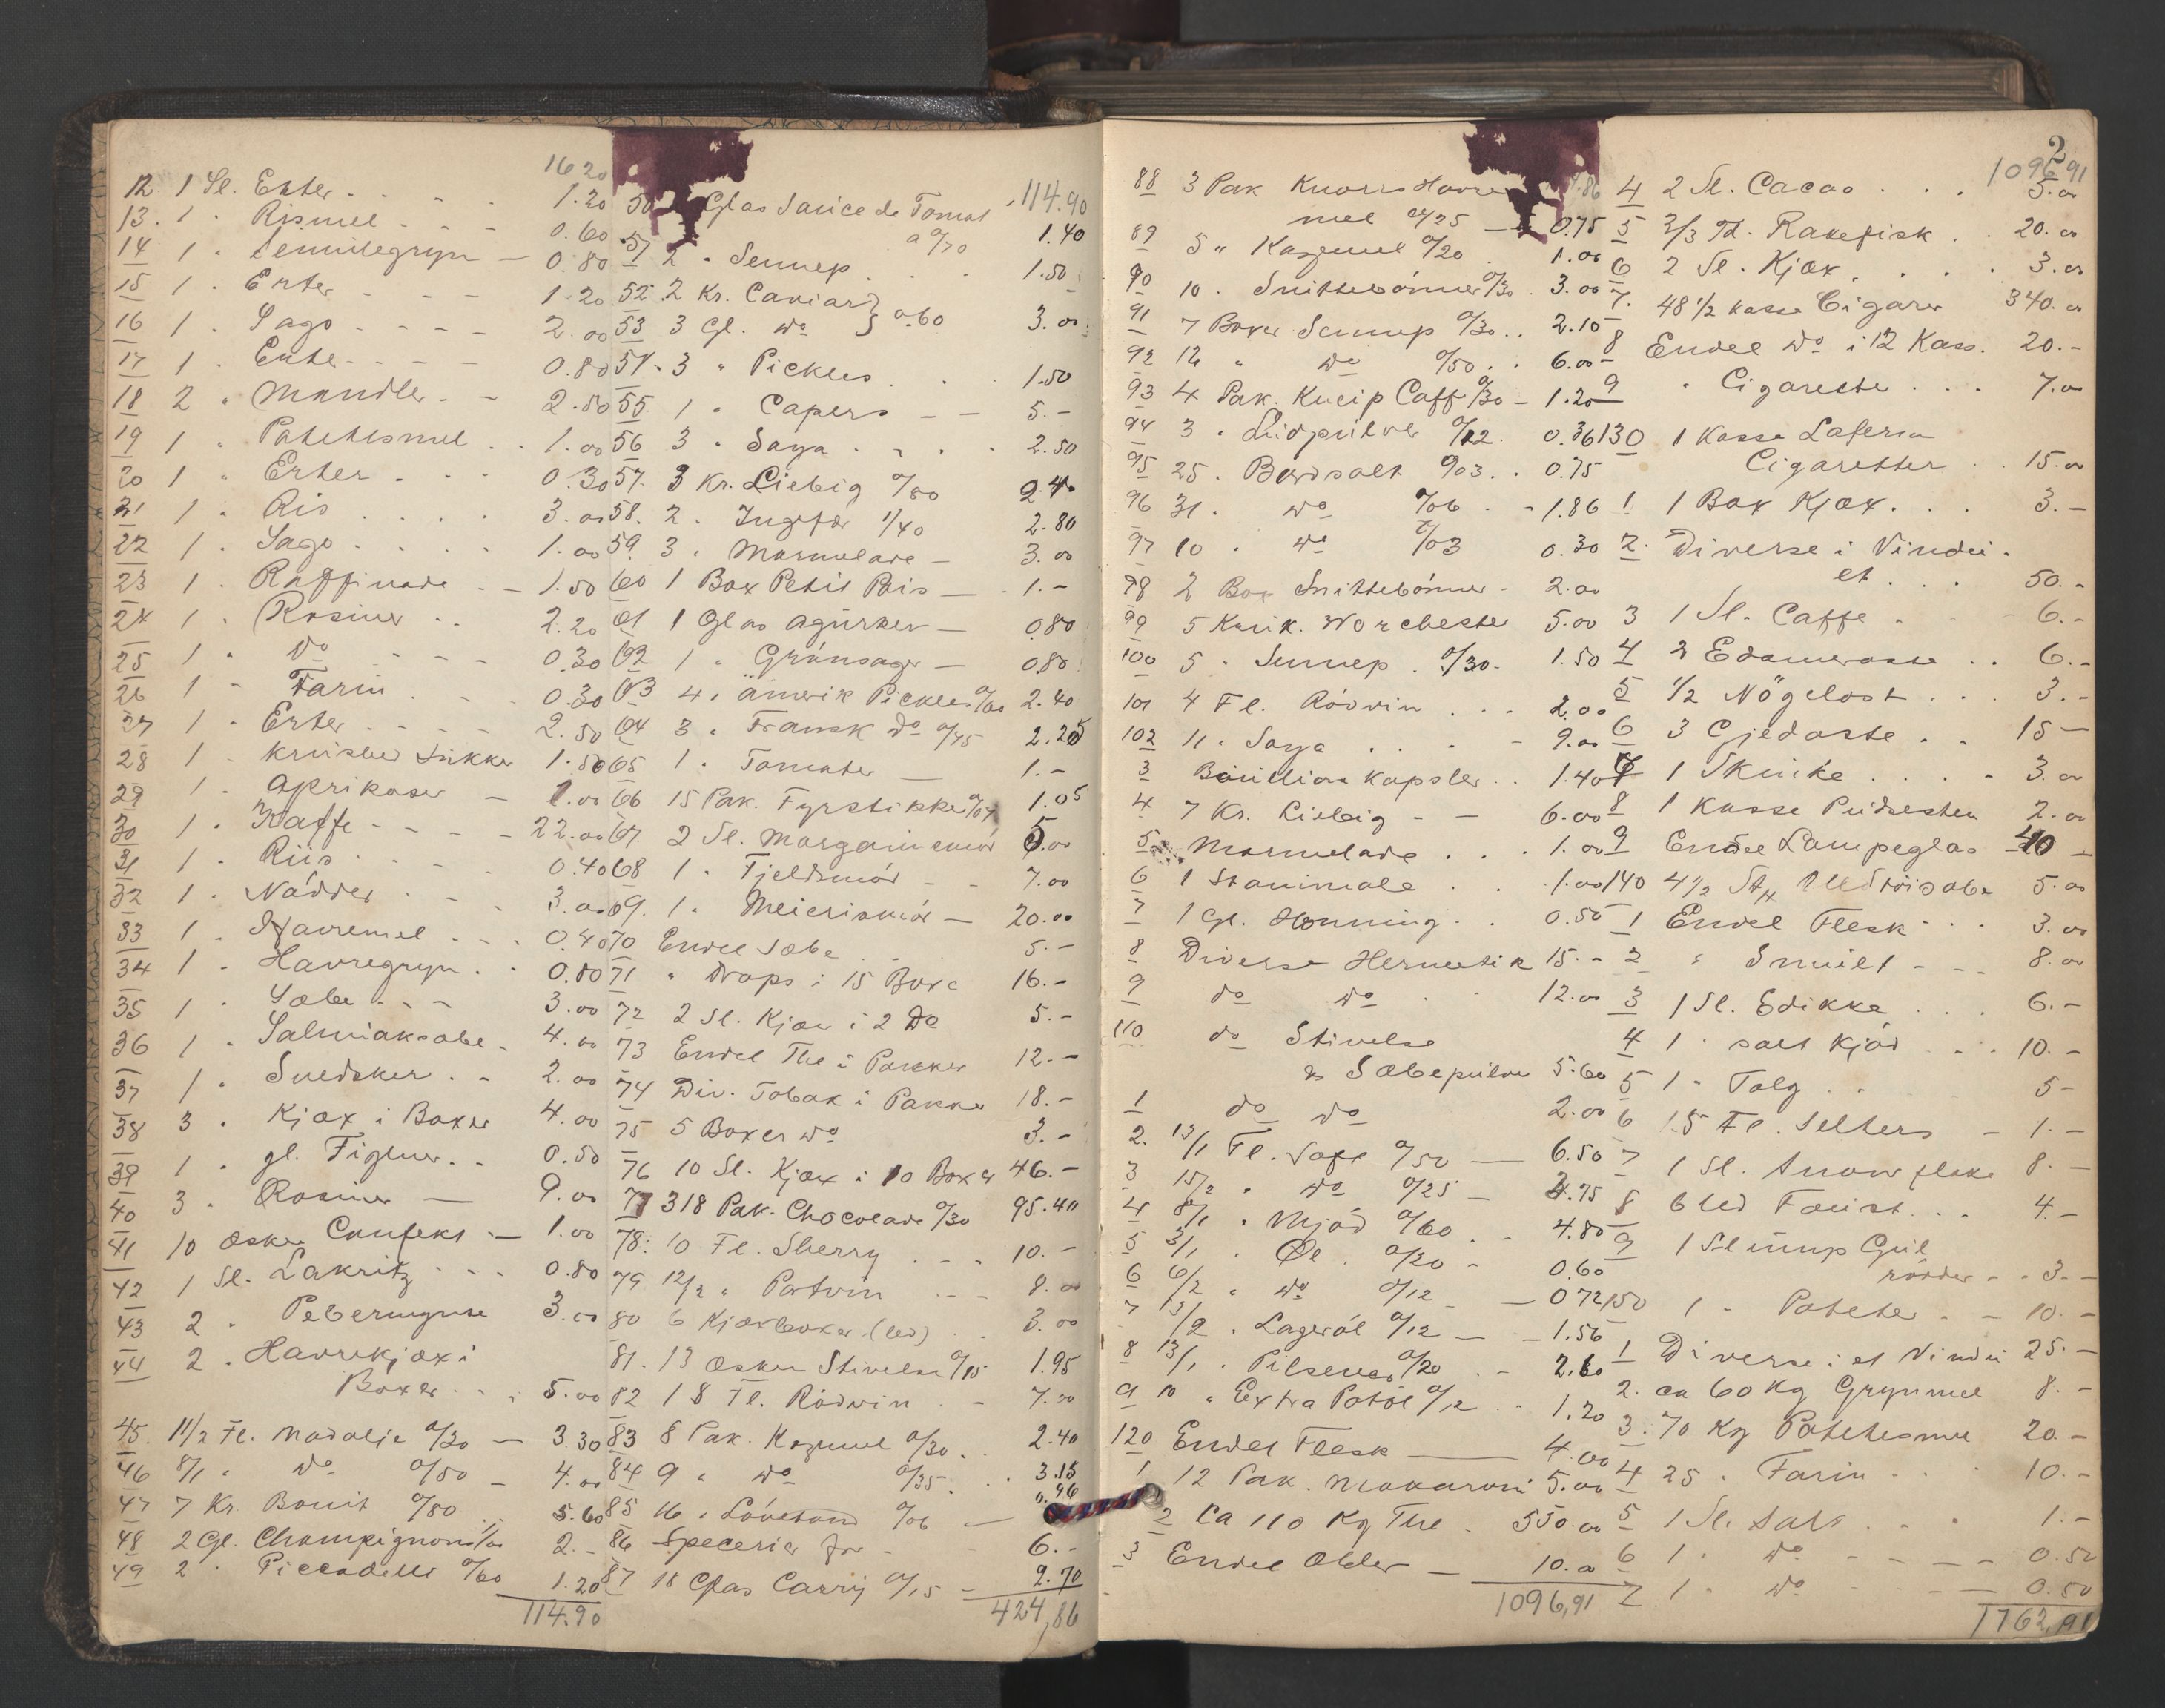 16 20
12. 1 Sl. Erter . . . . 1.20
13. 1 . Rismel . . . 0.60
14 1 . Semulegryn — 0.80
15 1 . Erter - - - 1.20
16 1 . Sago - - - - 2.00
17 1 . Erter - - - 0.80
18 2 . Mandler . - 2.80
19 1 . Potetesmel . . 1.00
20 1 . Erter . . . 0.30
21 1 . Ris . . . . 3.00
22 1 . Sago . . . . 1.00
23 1 . Raffinade . — 1.50
24 1 . Rosiner . . 2.20
25 1 . Do - - - 0.30
26 1 - Farin . . . 0.30
27 1 . Erter . - - - 2.50
28 1 . knuster Sukker 1.50
29 1 . Aprikoser — 1.00
30 1 . Kaffe - - - - 22.00
31 1 . Riis . . . . 0.40
32 1 . Nødder . . . 3.00
33 1 . Havremel . . . 0.40
34 1 . Havregryn . . 0.80
35 1 . Sæbe . - - 3.00
36 1 . Salmiaksæbe . 4.00
37 1 . Svedsker . - 2.00
38 3 . Kjæx i Boxer 4.00
39 1 . gl. Figener . . 0.50
40 3 . Rosiner — 9.00
41 10 Æsker Confekt — 1.00
42 1 Sl. Lakritz . . . 0.80
43 2 . Pebermynte 3.00
44 2 . Havrekjæx i
Boxer . . . 5.00
45. 11/2 Fl. Madolje a/30 — 3.30
46 8/1 . Do a/50 — 4.00
47 7 Kr. Bovit a/80 . . 5.60
48 2 Gl. Champignon 1/00 2.-
49 2 . Piccadelli a/60 1.20
114.90
114.90
50 Glas Sauce de Tomat
a 0/70 1.40
51 2 . Sennep . . . 1.50
52 2 Kr. Caviar } a.60
53 3 Gl. Do 3.00
54 . 3 . Pickles . . . 1.50
55. 1 . Capers — — 5.-
56 3 . Soya . . . . 2.50
57. 3 Kr. Liebig a/80 2.40
58. 2 . Ingefær 1/40 2.80
59. 3 . Marmelade — 3.00
60 1 Box Petit Pois — 1.-
61 1 Glas Agurker — 0.80
62 1 . Grønsager — 0.80
63 4 . Amerik Pickles a/60 2.40
64 3 . Fransk Do a/75 2.25
65 1 . Tomater — 1.-
66 15 Pak. Fyrstikker a/07 1.05
67. 2 Sl. Margarinsmør 5.00
68 1 . Fjeldsmør - - 7.00
69. 1 . Meierismør — 20.00
70 Endel Sæbe . . 5.-
71 " Drops i 15 Boxe 16.-
72 2 Sl. Kjæx i 2 Do 5.-
73 Endel The i Pakker 12.-
74 Div. Tobak i Pakker 18.-
75 5 Boxer Do 3.-
76 10 Sl. Kjæx i 10 Boxer 46.-
77 318 Pak. Chocolade a/30 95.40
78: 10 Fl. Sherry . . . 10.-
79 12/2 . Portvin . . . 8.00
80 6 Kjæxboxer (led) . . 3.00
81. 13 Æsker Stivelse a/15 1.95
82 18 Fl. Rødvin . - 7.20
83 8 Pak. Kagemel a/30 . . 2.40
84 9 " Do a/35 . . 3.15
85 16 . a/06 — 0.96
86 Specerier for - - 6.-
87 18 Glas Carry a/15 — 2.70
424,86
88 3 Pak Knorrs Havre
mel a/25 — 0.75
89 5 " Kagemel a/20 . 1.00
90 10 . Snittebønner a/30 . 3.00
91 7 Boxer Sennep a/30 . . 2.10
92 12 " Do a/50 . . 6.00
93 4 Pak. Kneip Caff a/30 — 1.20
94 3 . a/12 . 0.36
95 25 . Bordsalt a/03 . . 0.75
96 31 . Do a/06 . . 1.86
97 10 . Do a/03 0.30
98 2 Box Snittebønner - 2.00
99 5 Karik. Worchester 5.00
100 5 . Sennep . a/30 - 1.50
101 4 Fl. Rødvin . . . 2.00
102 11 . Soya . . . - 9.00
3 Bouillon kapsler . . 1.40
4 7 Kr. Liebig - — 6.00
5 Marmelade . . . 1.00
6 1 . . 1.00
7 1 Gl. Honning . . 0.50
8 Diverse Hermetik 15.-
9 do Do . . 12.00
110 do Stivelse
& Sæbepulver 5.60
1 do Do 2.00
2. 13/1 Fl. Saft a/50 — 6.50
3 15/2 . Do a/25 — 3.75
4 8/1 . Mjød a/60 . - 4.80
5 3/1 . Øl . a/20 - 0.60
6 6/2 . Do a/12 - — 0.72
7 13/2 . Lagerøl a/12 — - 1.56
8 13/1 . Pilsener a/20 . - 2.60
9 10 " Extra Potøl a/12 . . 1.20
120 Endel Flesk — 4.00
1 12 Pak. Makaroni 5.00
2 Ca 110 Kg The . 550.00
3 Endel Older — 10.00
1096,91
2
1096,91
4 2 Sl. Cacao . . . 5.00
5 2/3 Td. Rakefisk . . 20.00
6 2 Sl. Kjæx . . . . 3.00
7. 48 1/2 kasse Cigarer 340.00
8 Endel Do i 12 Kass. 20.-
9 " Cigarette . . . 7.00
130 1 Kasse Laferm
Cigaretter . . 15.00
1 1 Box Kjæx . . . 3.-
2. Diverse i Vindu .
et . . . 50.-
3 1 Sl. Caffe . - 6.-
4 2 Edamerosse . . 6.-
5 1/2 Nøgelost . . . 3.-
6 3 Gjedoste . . 15 —
7 1 Skinke . . . . 3.00
8 1 Kasse Pudsesten 2.00
9 Endel Lampeglas 10 —
140 4 1/2 5.00
1 Endel Flesk . . . 3.00
2 " Smult - - - 8.00
3 1 Sl. Edikke . . . 6.-
4 1 . salt Kjød . . . 10.-
5 1 . Talg . . 5-
6 15 Fl. Selters — 1.-
7 1 Sl. Snowflake 8.-
8 6 led Fouist . . . 4.-
9 1 Slump Gul
rødder - . 3.-
150 1 . Poteter . — 10.-
1 Diverse i et Vindu 25.-
2. ca 60 Kg Grynmel 8.-
3. 70 Kg Potetesmel 20.-
4 25 . Farin . . . 10.-
5 1 Sl. Salt . . . . 1.-
6 1 . Do - - - — 0.50
7 1 . Do - - - — 0.50
1762,91